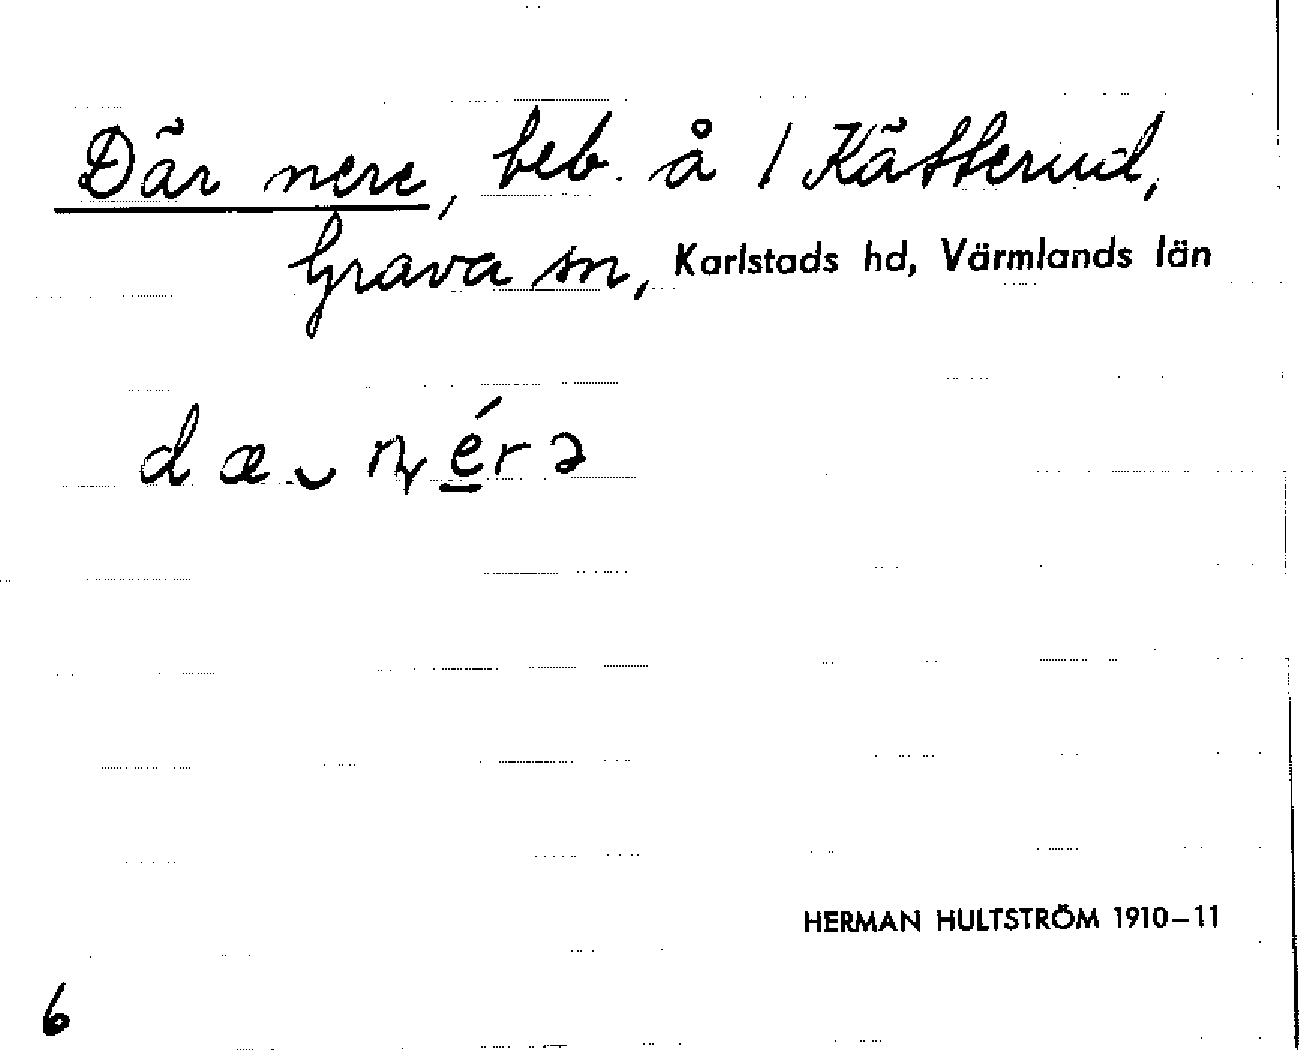 Där nere, beb. å 1 Kätterud,
Grava sn, Karlstads hd, Värmlands län
dæ‿ɳérə
HERMAN HULTSTRÖM 1910–11
6